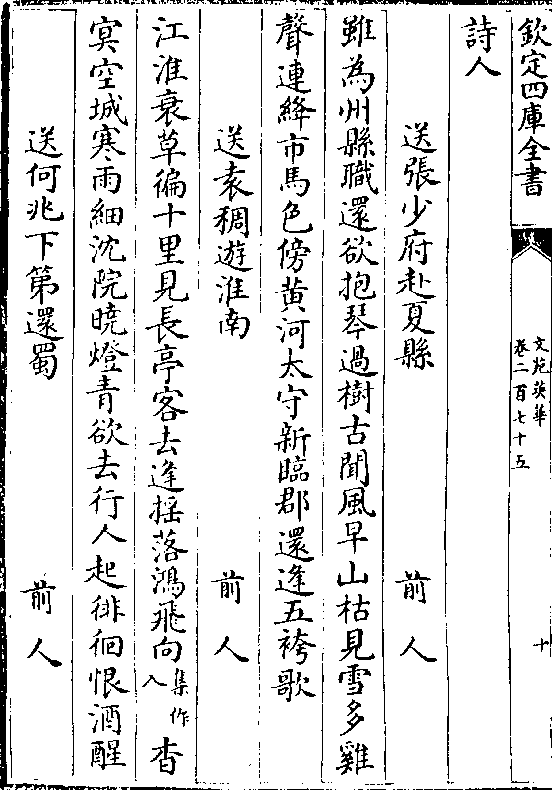 欽定四庫全書
文苑英華
卷二百七十五
十
詩人
送張少府赴夏縣　前人
雖為州縣職還欲抱琴過樹古聞風早山枯見雪多雞
聲連絳市馬色傍黄河太守新臨郡還逢五袴歌
送袁稠遊淮南　前人
江淮衰草徧十里見長亭客去逢揺落鴻飛向集作入杳
㝠空城寒雨細沈院曉燈青欲去行人起徘徊恨酒醒
送何兆下第還蜀　前人